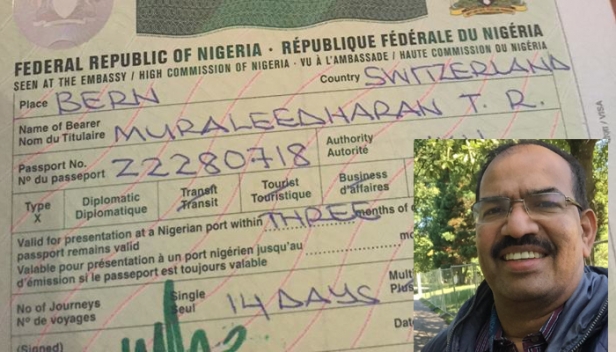 FEDERAL REPUBLIC OF NIGERIA · RÉPUBLIQUE FÉDÉRALE DU NIGÉRIA
SEEN AT THE EMBASSY / HIGH COMMISSION OF NIGERIA · VU À L'AMBASSADE / HAUTE COMMISSION DU NIGÉRIA
Place BERN Country SWITZERLAND
Name of Bearer MURALEEDHARAN T. R.
Nom du Titulaire
Passport No. Z2280718 Authority
Nº du passeport Autorité
Type Diplomatic Transit Tourist Business
X Diplomatique Transit Touristique d'affaires
Valid for presentation at a Nigerian port within THREE months of
passport remains valid
Valable pour présentation à un port nigérien jusqu'au
d'émission si le passeport est toujours valable
No of Journeys Single 14 DAYS
Nº de voyages Seul
(Signed)
/ VISA